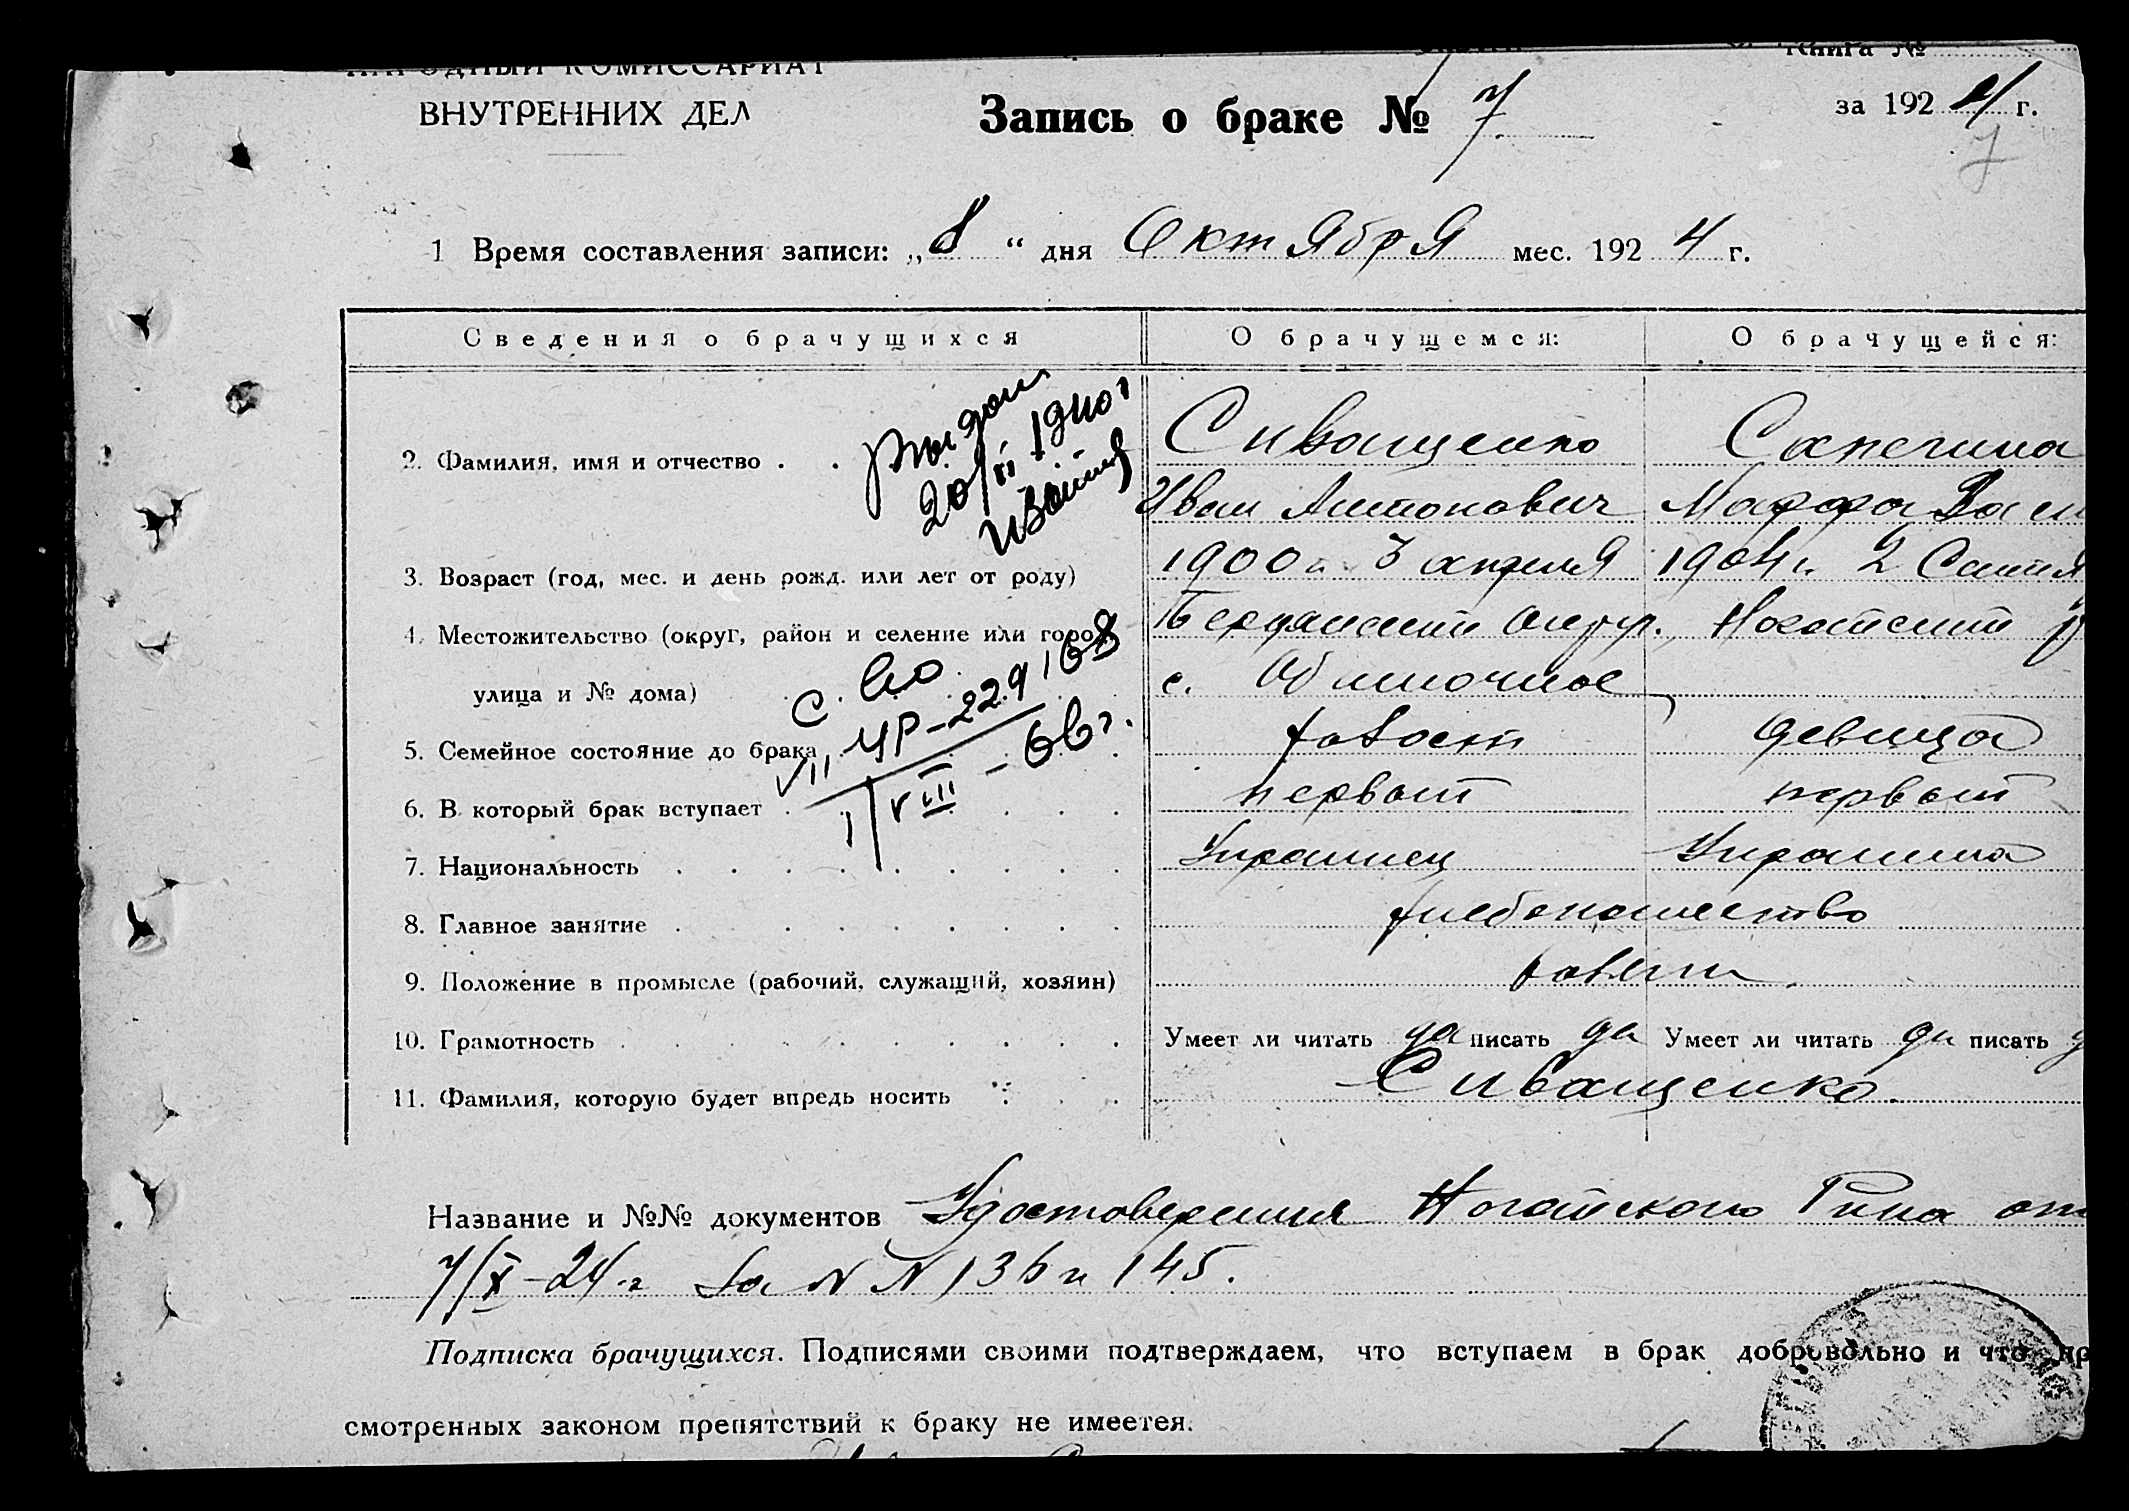 НАРОДНЫЙ КОМИССАРИАТ
Книга №
ВНУТРЕННИХ ДЕЛ
Запись о браке № 7
за 1924 г.
7
1 Время составления записи: „8“ дня Октября мес. 1924 г.
Сведения о брачущихся
О брачущемся:
О брачущейся:
2. Фамилия, имя и отчество . .
Сиващенко
Сапегина
Иван Антонович
Марфа Васи
3. Возраст (год, мес. и день рожд. или лет от роду)
1900 г. 3 апреля
1904 г. 2 Сентя
4. Местожительство (округ, район и селение или город,
улица и № дома)
Бердянский округ., Ногайский р
с. Обиточное
5. Семейное состояние до брака
холост
девица
6. В который брак вступает
первый
первый
7. Национальность
Украинец
Украинка
8. Главное занятие
хлебопашество
9. Положение в промысле (рабочий, служащий, хозяин)
10. Грамотность
Умеет ли читать да писать да
Умеет ли читать да писать д
11. Фамилия, которую будет впредь носить
Сиващенко.
20/II 1940 г
УР-229168
VIII - 66 г.
Название и №№ документов Удостоверения Ногайского Рика от
7/X-24 г за NN 136 и 145.
Подписка брачущихся. Подписями своими подтверждаем, что вступаем в брак добровольно и что пр
смотренных законом препятствий к браку не имеется.